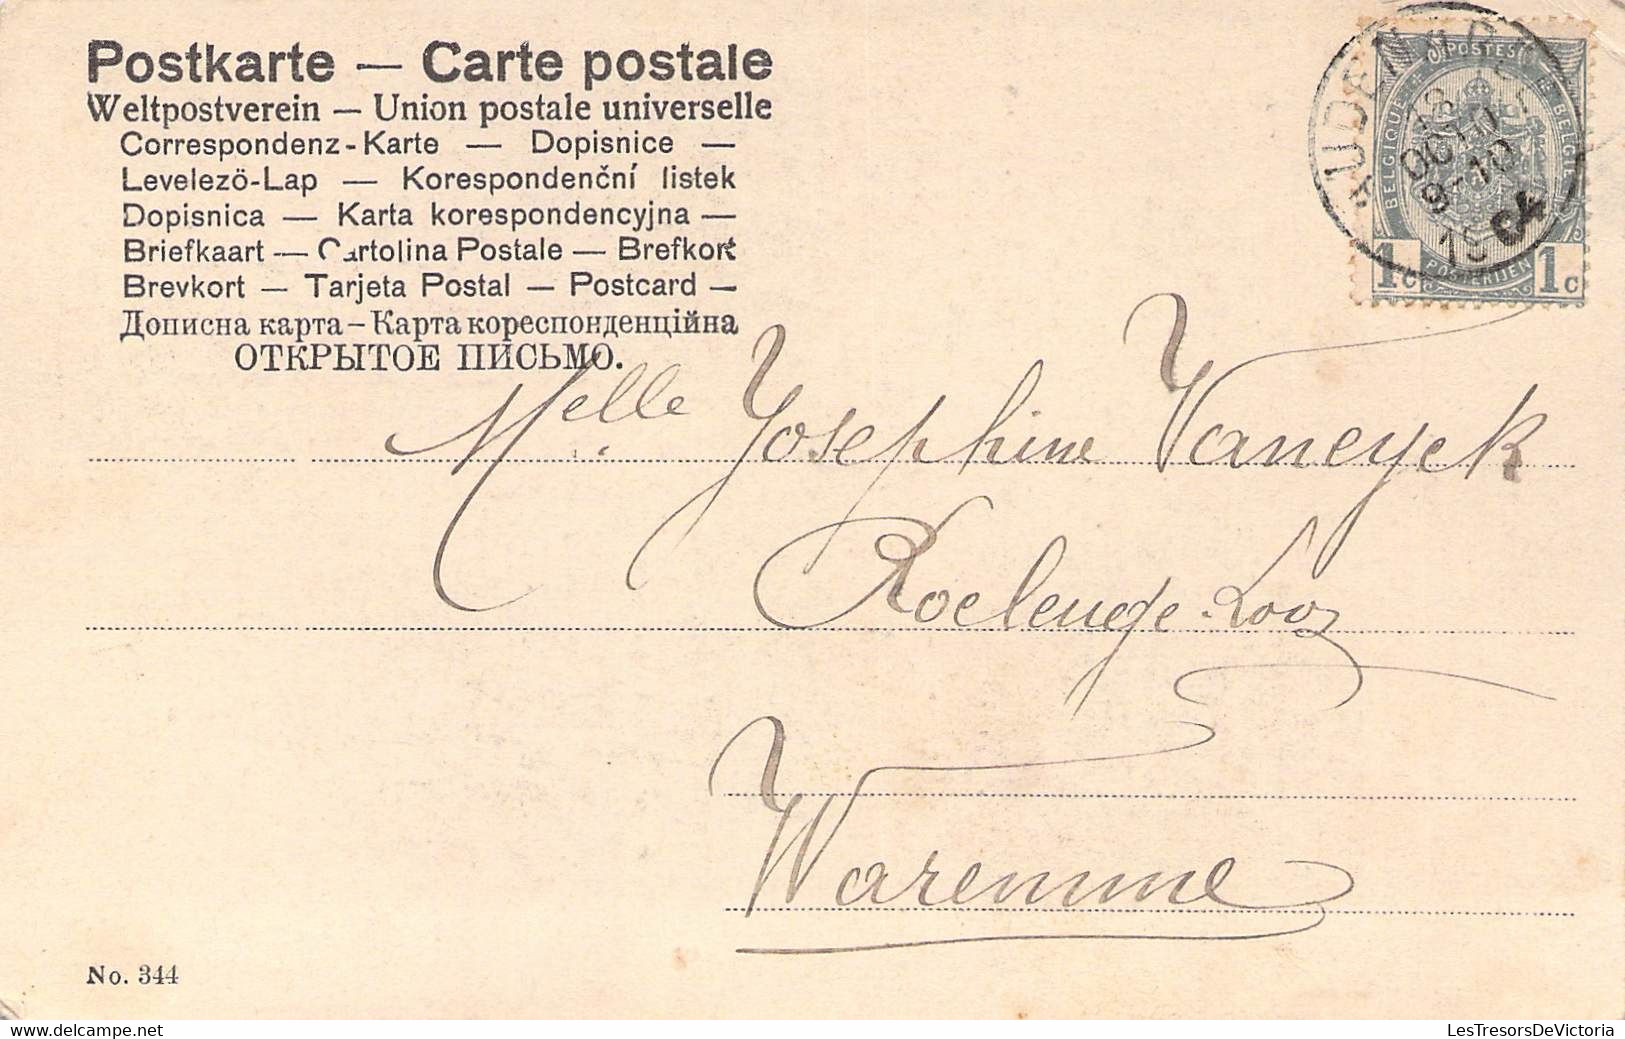 Postkarte — Carte postale
Weltpostverein — Union postale universelle
Correspondenz-Karte — Dopisnice —
Levelezö-Lap — Korespondenční listek
Dopisnica — Karta korespondencyjna —
Briefkaart — Cartolina Postale — Brefkort
Brevkort — Tarjeta Postal — Postcard —
Дописна карта – Карта кореспонденційна
ОТКРЫТОЕ ПИСЬМО.
POSTES
BELGIQUE
BELGIE
POSTERIJEN
1c 1c
OCTO
10
19 04
Melle Josephine Vaneyck
Roelenge-Looz
Waremme
No. 344
LesTresorsDeVictoria
www.delcampe.net